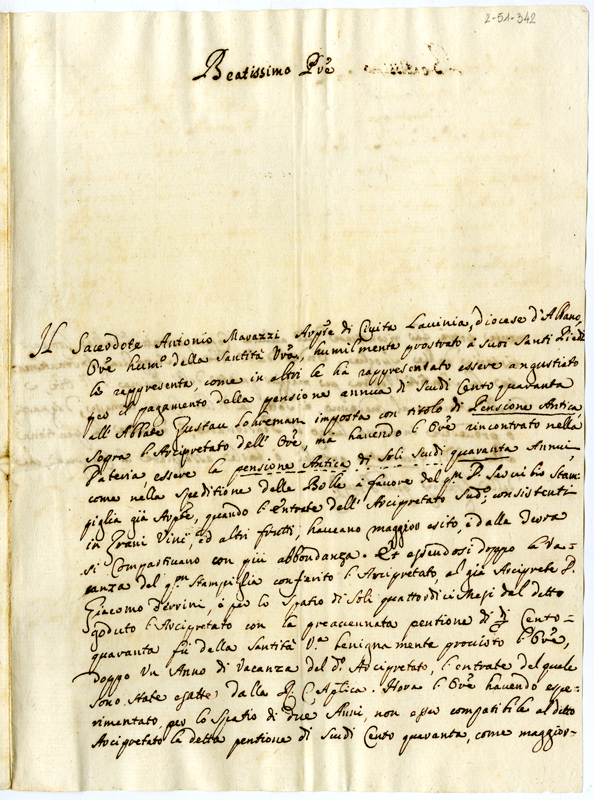 2-51-342
Beatissimo Pre
Il Sacerdote Antonio Marazzi Arpte di Civita Lavinia, diocese d'Albano,
Ore humo della Santità Vra, humilmente prostrato à suoi Santi Piedi
le rappresenta, come in altri le hà rappresentato essere angustiato
per il pagamento della pensione annua di Scudi Cento quaranta
all'Abbate imposta con titolo di Pensione Antica,
sopra l'Arcipretato dell'Ore, ma havendo l'Ore rincontrato nella
Dateria, essere la pensione Antica di Soli Scudi quaranta Annui,
come nella Speditione delle Bolle à favore del qm P. Stam-
piglia già Arpte, quando l'Entrate dell'Arcipretato Sudo, consistenti
in Grani Vini, ed altri frutti, haveano maggior esito, e dalla Terra
si Compartivano con più abbondanza. Et essendosi doppo la Va-
canza del qm Stampiglia conferito l'Arcipretato, al già Arciprete P.
Giacomo è per lo Spatio di Soli quattordici Mesi del detto
goduto l'Arcipretato con la preaccennata pentione di Cento-
quaranta fù della Santità Va benignamente provisto l'Ore,
doppo Un Anno di Vacanza del do Arcipretato, l'entrate del quale
sono state esatte dalla R. C. Aplica. Hora l'Ore havendo espe-
rimentato, per lo Spatio di due Anni, non esser compatibile al detto
Arcipretato la detta pentione di Scudi Cento quaranta, come maggior-